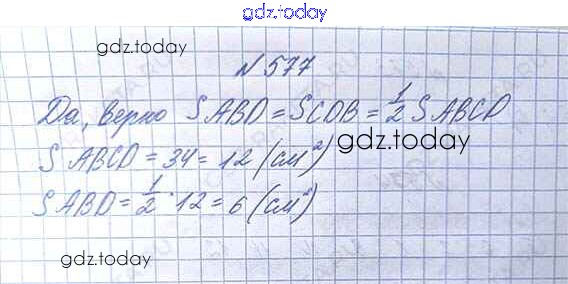 gdz.today
gdz.today
№ 577
Да, верно SABD = SCDB = 1/2 SABCD
SABCD = 34 = 12 (см²)
gdz.today
SABD = 1/2 · 12 = 6 (см²)
gdz.today